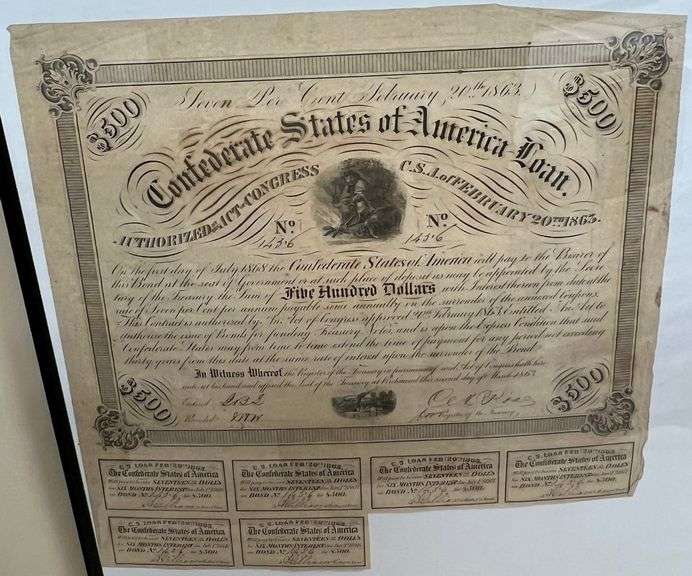 Seven Per Cent February, 20th 1863.
$500
$500
Confederate States of America Loan.
AUTHORIZED BY ACT OF CONGRESS
C.S.A. of FEBRUARY 20TH 1863.
No
No
1456
1456
On the first day of July 1868 the Confederate States of America will pay to the Bearer of
this Bond at the seat of Government or at such place of deposit as may be appointed by the
of the Treasury the Sum of Five Hundred Dollars with Interest thereon from date at the
rate of Seven per Cent per annum payable semi annually on the surrender of the annexed Coupons
This Contract is authorized by An Act of Congress approved 20th February 1863 Entitled "An Act to
authorize the issue of Bonds for funding Treasury Notes" and is upon the Express Condition that said
Confederate States may from time to time extend the time of payment for any period not exceeding
thirty years from this date at the same rate of interest upon the surrender of the Bond.
In Witness Whereof the Register of the Treasury in pursuance of said Act of Congress hath here
unto set his hand and affixed the Seal of the Treasury at Richmond this second day of March 1863
Entered
Recorded
Register of the Treasury
$500
$500
C. S. LOAN FEB 20TH 1863.
The Confederate States of America
SEVENTEEN 50 DOLLS
SIX MONTHS INTEREST
BOND No 1456 $500.
C. S. LOAN FEB 20TH 1863.
The Confederate States of America
SEVENTEEN 50 DOLLS
SIX MONTHS INTEREST
BOND No 1456 $500.
C. S. LOAN FEB 20TH 1863.
The Confederate States of America
SEVENTEEN 50 DOLLS
SIX MONTHS INTEREST
BOND No 1456 $500.
C. S. LOAN FEB 20TH 1863.
The Confederate States of America
SEVENTEEN 50 DOLLS
SIX MONTHS INTEREST
BOND No 1456 $500.
C. S. LOAN FEB 20TH 1863.
The Confederate States of America
SEVENTEEN 50 DOLLS
SIX MONTHS INTEREST
BOND No 1456 $500.
C. S. LOAN FEB 20TH 1863.
The Confederate States of America
SEVENTEEN 50 DOLLS
SIX MONTHS INTEREST
BOND No 1456 $500.